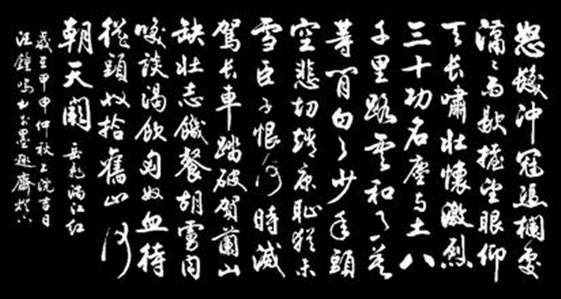 怒髮沖冠憑欄處
瀟〻雨歇抬望眼仰
天長嘯壯懷激烈
三十功名塵与土八
千里路雲和月莫
等閒白了少年頭
空悲切靖康恥猶未
雪臣子恨何時滅
駕長車踏破賀蘭山
缺壯志饑餐胡虜肉
笑談渴飲匈奴血待
從頭收拾舊山河
朝天闕 岳飛滿江紅
歲在甲申仲秋上浣吉日
汪鐘鳴书於墨